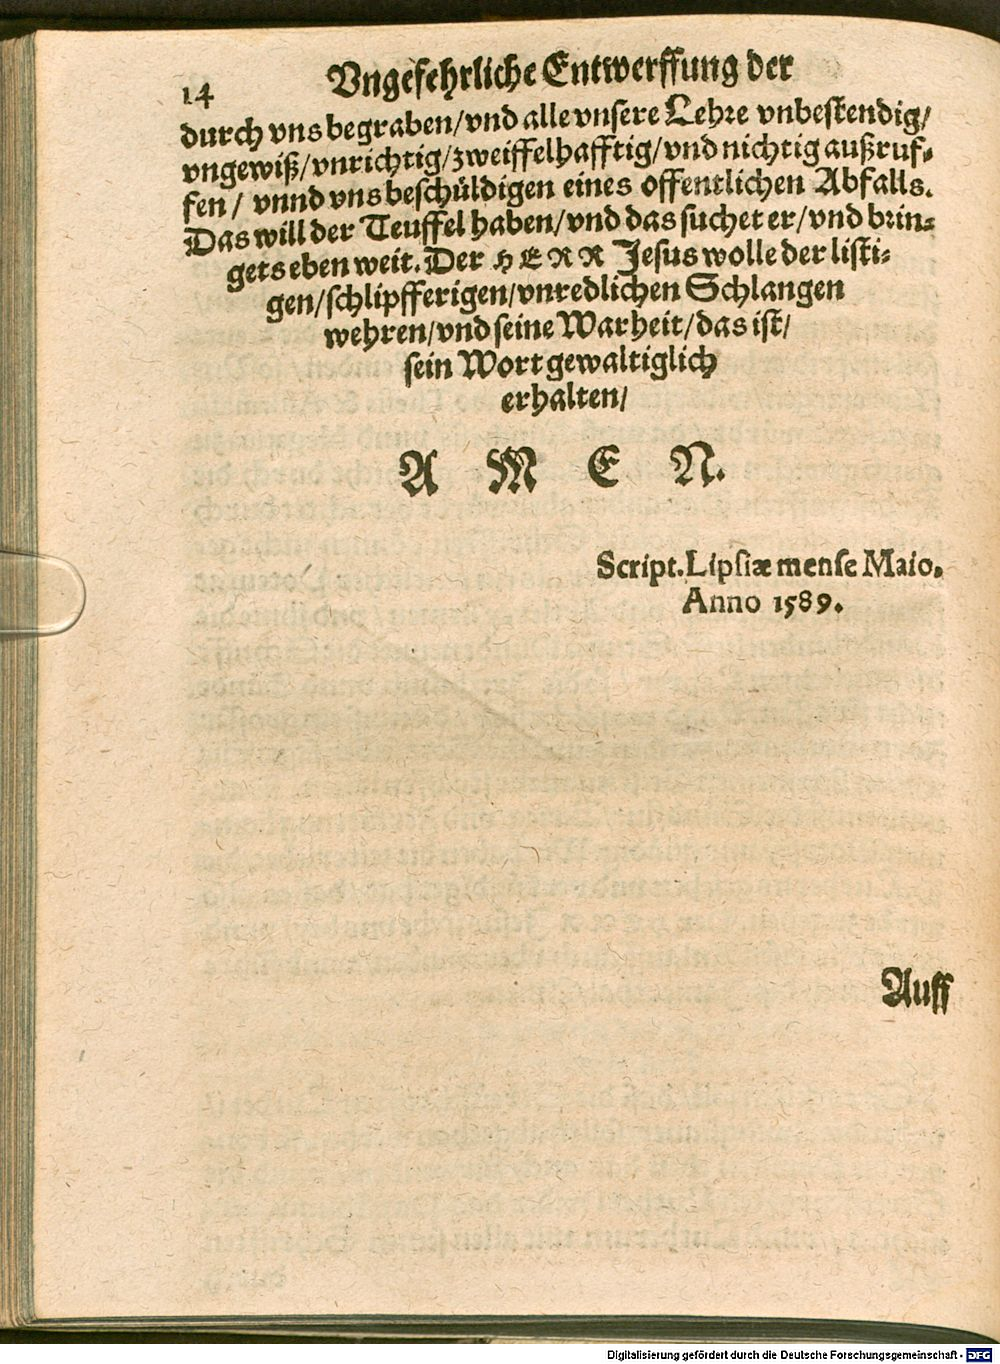 14 Vngefehrliche Entwerffung der
durch vns begraben/vnd alle vnsere Lehre vnbestendig/
vngewiß/vnrichtig/zweiffelhafftig/vnd nichtig außruf-
fen/ vnnd vns beschüldigen eines offentlichen Abfalls.
Das will der Teuffel haben/vnd das suchet er/vnd brin-
gets eben weit. Der HERR Jesus wolle der listi-
gen/schlipfferigen/vnredlichen Schlangen
wehren/vnd seine Warheit/das ist/
sein Wort gewaltiglich
erhalten/
A M E N.
Script. Lipsiæ mense Maio.
Anno 1589.
Auff
Digitalisierung gefördert durch die Deutsche Forschungsgemeinschaft - DFG